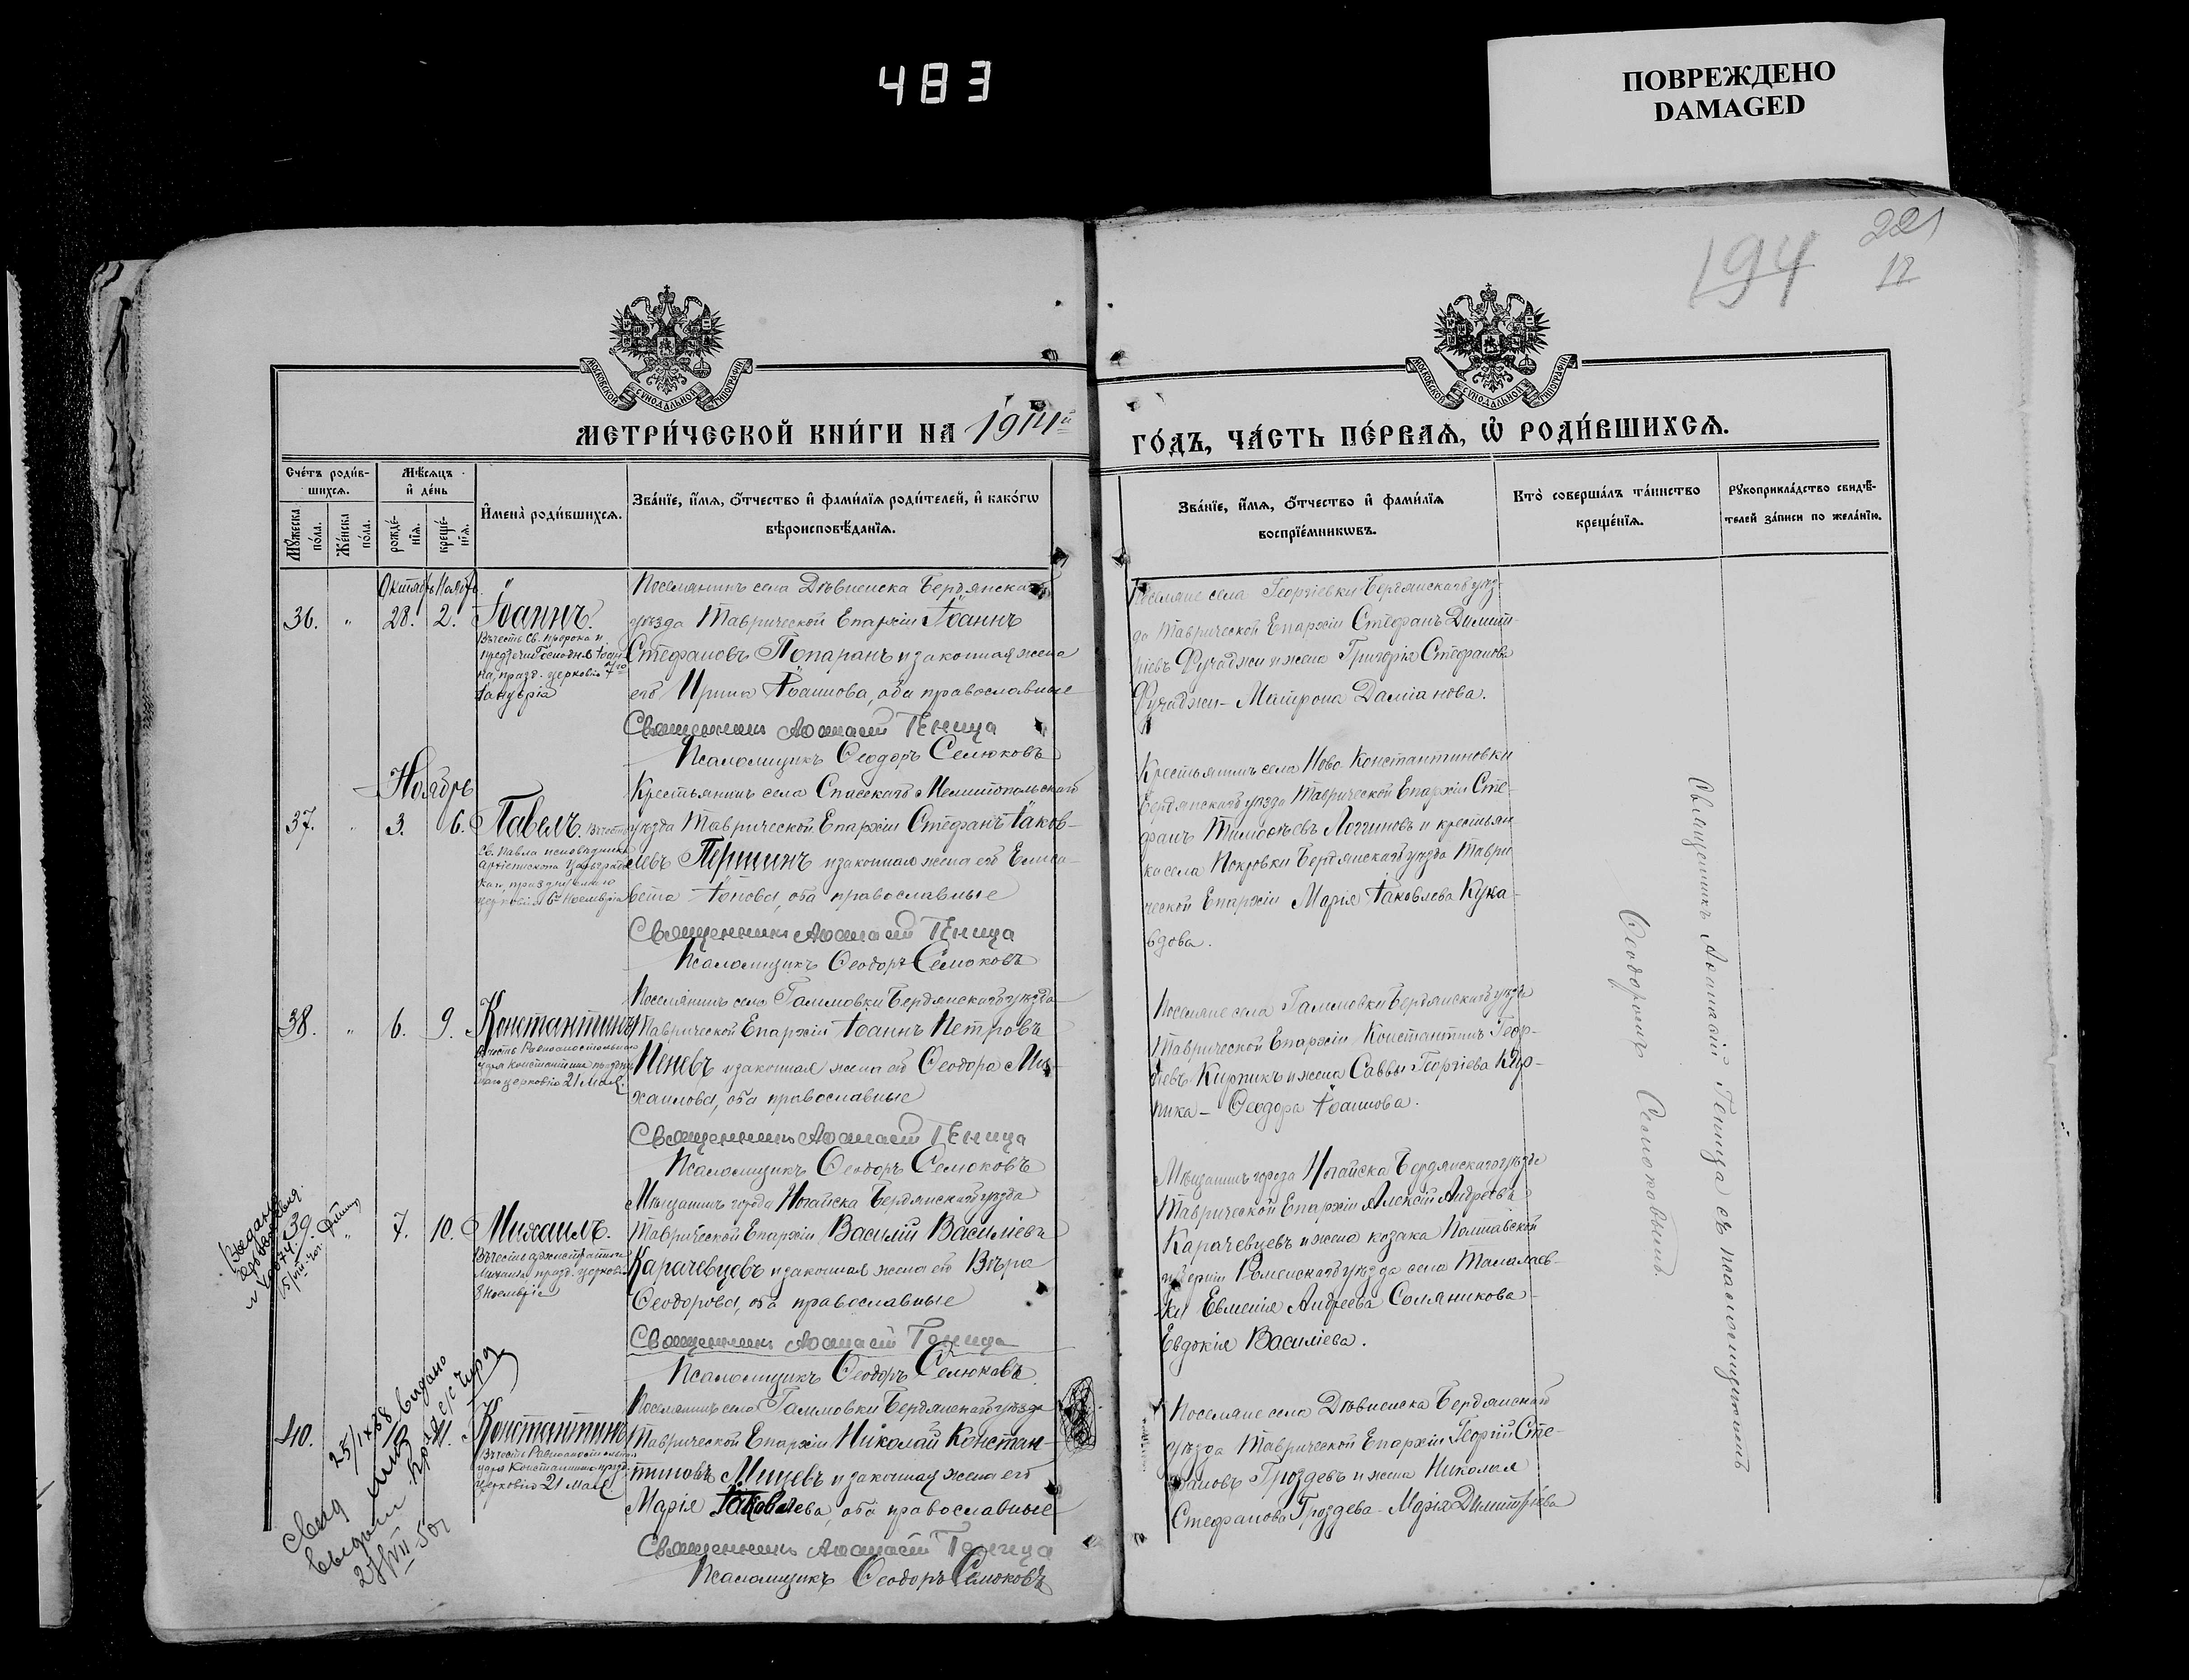 483
ПОВРЕЖДЕНО
DAMAGED
221
194
12
МОСКОВСКОЙ СѴНОДАЛЬНОЙ ТИПОГРАФІИ
МОСКОВСКОЙ СѴНОДАЛЬНОЙ ТИПОГРАФІИ
МЕТРИ́ЧЕСКОЙ КНИ́ГИ НА 1911й
ГО́ДЪ, ЧА́СТЬ ПЕ́РВАѦ, Ѡ҆ РОДИ́ВШИХСѦ.
Сче́тъ роди́в-
шихсѧ.
Мꙋ́жеска по́ла.
Же́нска по́ла.
Мѣ́сѧцъ
и҆ де́нь
рожде́-
нїѧ.
креще́-
нїѧ.
И҆мена̀ роди́вшихсѧ.
Зва́нїе, и҆́мѧ, ѻ҆́тчество и҆ фами́лїѧ роди́телей, и҆ како́гѡ
вѣроисповѣ́данїѧ.
Зва́нїе, и҆́мѧ, ѻ҆́тчество и҆ фами́лїѧ
воспрїе́мникѡвъ.
Кто̀ соверша́лъ та́инство
креще́нїѧ.
Рꙋкоприкла́дство свидѣ́-
телей за́писи по жела́нїю.
Октябрь Ноябрь
36. " 28. 2. Іоаннъ.
Въ честь Св. пророка и
предтечи Господня Іоан-
на, празд. церковію 7го
Января
Поселянинъ села Дѣвненска Бердянскаго
уѣзда Таврической Епархіи Іоаннъ
Стефановъ Попаранъ и законная жена
его Ирина Іоаннова, оба православные
Священникъ Аѳанасій Геница
Псаломщикъ Ѳеодоръ Селюковъ
Поселяне села Георгіевки Бердянскаго уѣз-
да Таврической Епархіи Стефанъ Димит-
ріевъ Фучаджи и жена Григорія Стефанова
Фучаджи - Матрона Даміанова.
Ноябрь
37. " 3. 6. Павелъ. Въ честь
Св. Павла исповѣдника
Архіепископа Царьград-
скаго, празднуемаго
церковію 6го Ноемврія
Крестьянинъ села Спасскаго Мелитопольскаго
уѣзда Таврической Епархіи Стефанъ Іаков-
левъ Першинъ и законная жена его Елиса-
вета Іонова, оба православные
Священникъ Аѳанасій Геница
Псаломщикъ Ѳеодоръ Селюковъ
Крестьянинъ села Ново-Константиновки
Бердянскаго уѣзда Таврической Епархіи Сте-
фанъ Тимоѳеевъ Логгиновъ и крестьян-
ка села Покровки Бердянскаго уѣзда Таври-
ческой Епархіи Марія Іаковлева Кука-
вдова.
38. " 6. 9. Константинъ
Въ честь Равноапостольнаго
царя Константина празднуе-
маго церковію 21 Мая.
Поселянинъ села Гаммовки Бердянскаго уѣзда
Таврической Епархіи Іоаннъ Петровъ
Пеневъ и законная жена его Ѳеодора Ми-
хаилова, оба православные
Священникъ Аѳанасій Геница
Псаломщикъ Ѳеодоръ Селюковъ
Поселяне села Гаммовки Бердянскаго уѣзда
Таврической Епархіи Константинъ Геор-
гіевъ Кирпикъ и жена Саввы Георгіева Кир-
пика - Ѳеодора Іоаннова.
39. " 7. 10. Михаилъ.
Въ честь архистратига
Михаила празд. церковію
8 Ноемврія
Мѣщанинъ города Ногайска Бердянскаго уѣзда
Таврической Епархіи Василій Василіевъ
Карачевцевъ и законная жена его Вѣра
Ѳеодорова, оба православные
Священникъ Аѳанасій Геница
Псаломщикъ Ѳеодоръ Селюковъ
Мѣщанинъ города Ногайска Бердянскаго уѣзда
Таврической Епархіи Алексій Андреевъ
Карачевцевъ и жена козака Полтавской
губерніи Роменскаго уѣзда села Талалаев-
ки Евменія Андреева Соляникова -
Евдокія Василіева.
40. 11. Константинъ
Въ честь Равноапостольнаго
царя Константина празд.
церковію 21 Мая.
Поселянинъ села Гаммовки Бердянскаго уѣзда
Таврической Епархіи Николай Констан-
тиновъ Мицевъ и законная жена его
Марія Іаковлева, оба православные
Священникъ Аѳанасій Геница
Псаломщикъ Ѳеодоръ Селюковъ
Поселяне села Дѣвненска Бердянскаго
уѣзда Таврической Епархіи Георгій Сте-
фановъ Гроздевъ и жена Николая
Стефанова Гроздева - Марія Димитріева
Священникъ Аѳанасій Геница съ псаломщикомъ
Ѳеодоромъ Селюковымъ.
25/IX 38 выдано